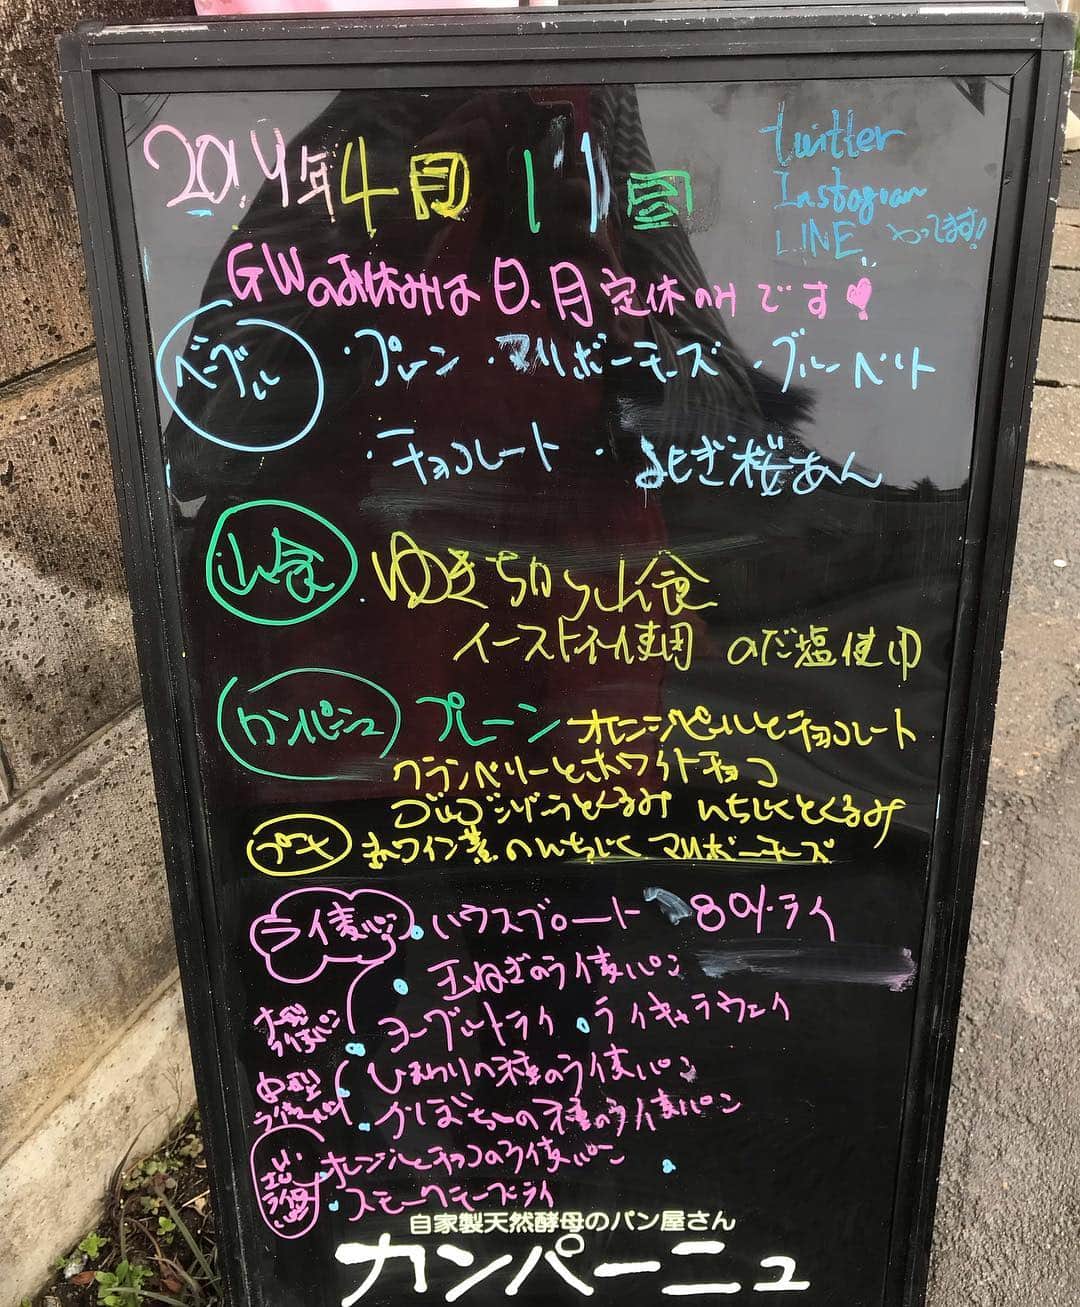 2019年4月11日
twitter
Instagram
LINE やってます!
GWのお休みは日、月定休のみです
ベーグル ・プレーン ・マリボーチーズ ・ブルーベリー
・チョコレート ・よもぎ桜あん
山食 ゆきちから山食
イースト不使用 のだ塩使用
カンパーニュ プレーン オレンジピールとチョコレート
クランベリーとホワイトチョコ
ゴルゴンゾーラとくるみ いちじくとくるみ
プチ 赤ワイン煮のいちじく マリボーチーズ
ライ麦パン ・ハウスブロート 80%ライ
・玉ねぎのライ麦パン
大型ライ麦パン ・ヨーグルトライ ・ライキャラウェイ
中型ライ麦パン ・ひまわりの種のライ麦パン
・かぼちゃの種のライ麦パン
ライ麦 ・オレンジとチョコのライ麦パン
・スモークチーズライ
自家製天然酵母のパン屋さん
カンパーニュ